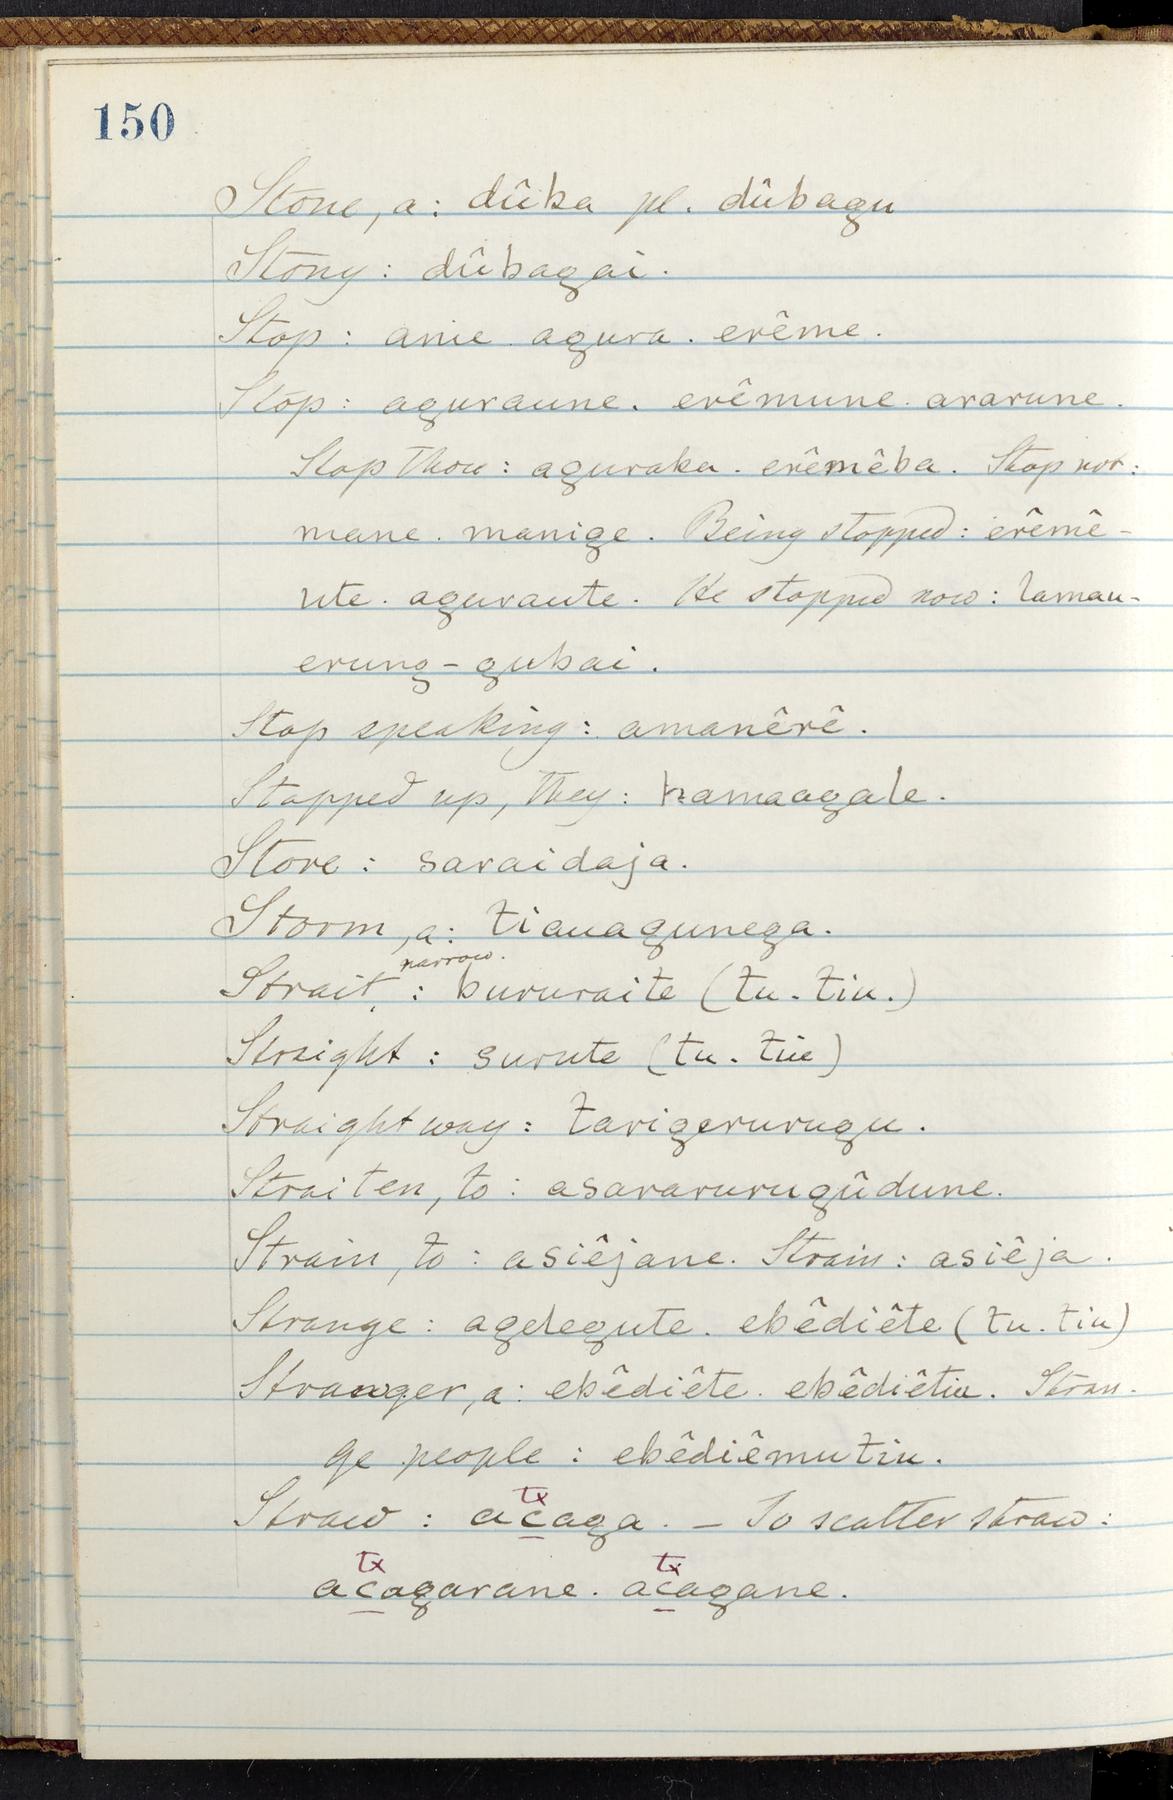 150
Stone, a: dûka pl. dûbagu
Stony: dûbagai.
Stop: anie. agura. erême.
Stop: aguraune. erêmune. ararune.
Stop thou: aguraka. erêmêba. Stop not:
mane. manige. Being stopped: erêmê-
ute. aguraute. He stopped now: laman-
erung-gubai.
Stop speaking: amanêrê.
Stopped up, they: hamaagale.
Store: saraidaja.
Storm, a: tianagunega.
narrow.
Strait : bururaite (tu. tiu.)
Straight : surute (tu. tiu)
Straightway: tarigerurugu.
Straiten, to: asararurugûdune.
Strain, to: asiêjane. Strain: asiêja.
Strange: agelegute. ebêdiête (tu. tiu)
Stranger, a: ebêdiête. ebêdiêtiu. Stran-
ge people : ebêdiêmutiu.
tx
Straw : acaga. – To scatter straw:
tx tx
acagarane. acagane.